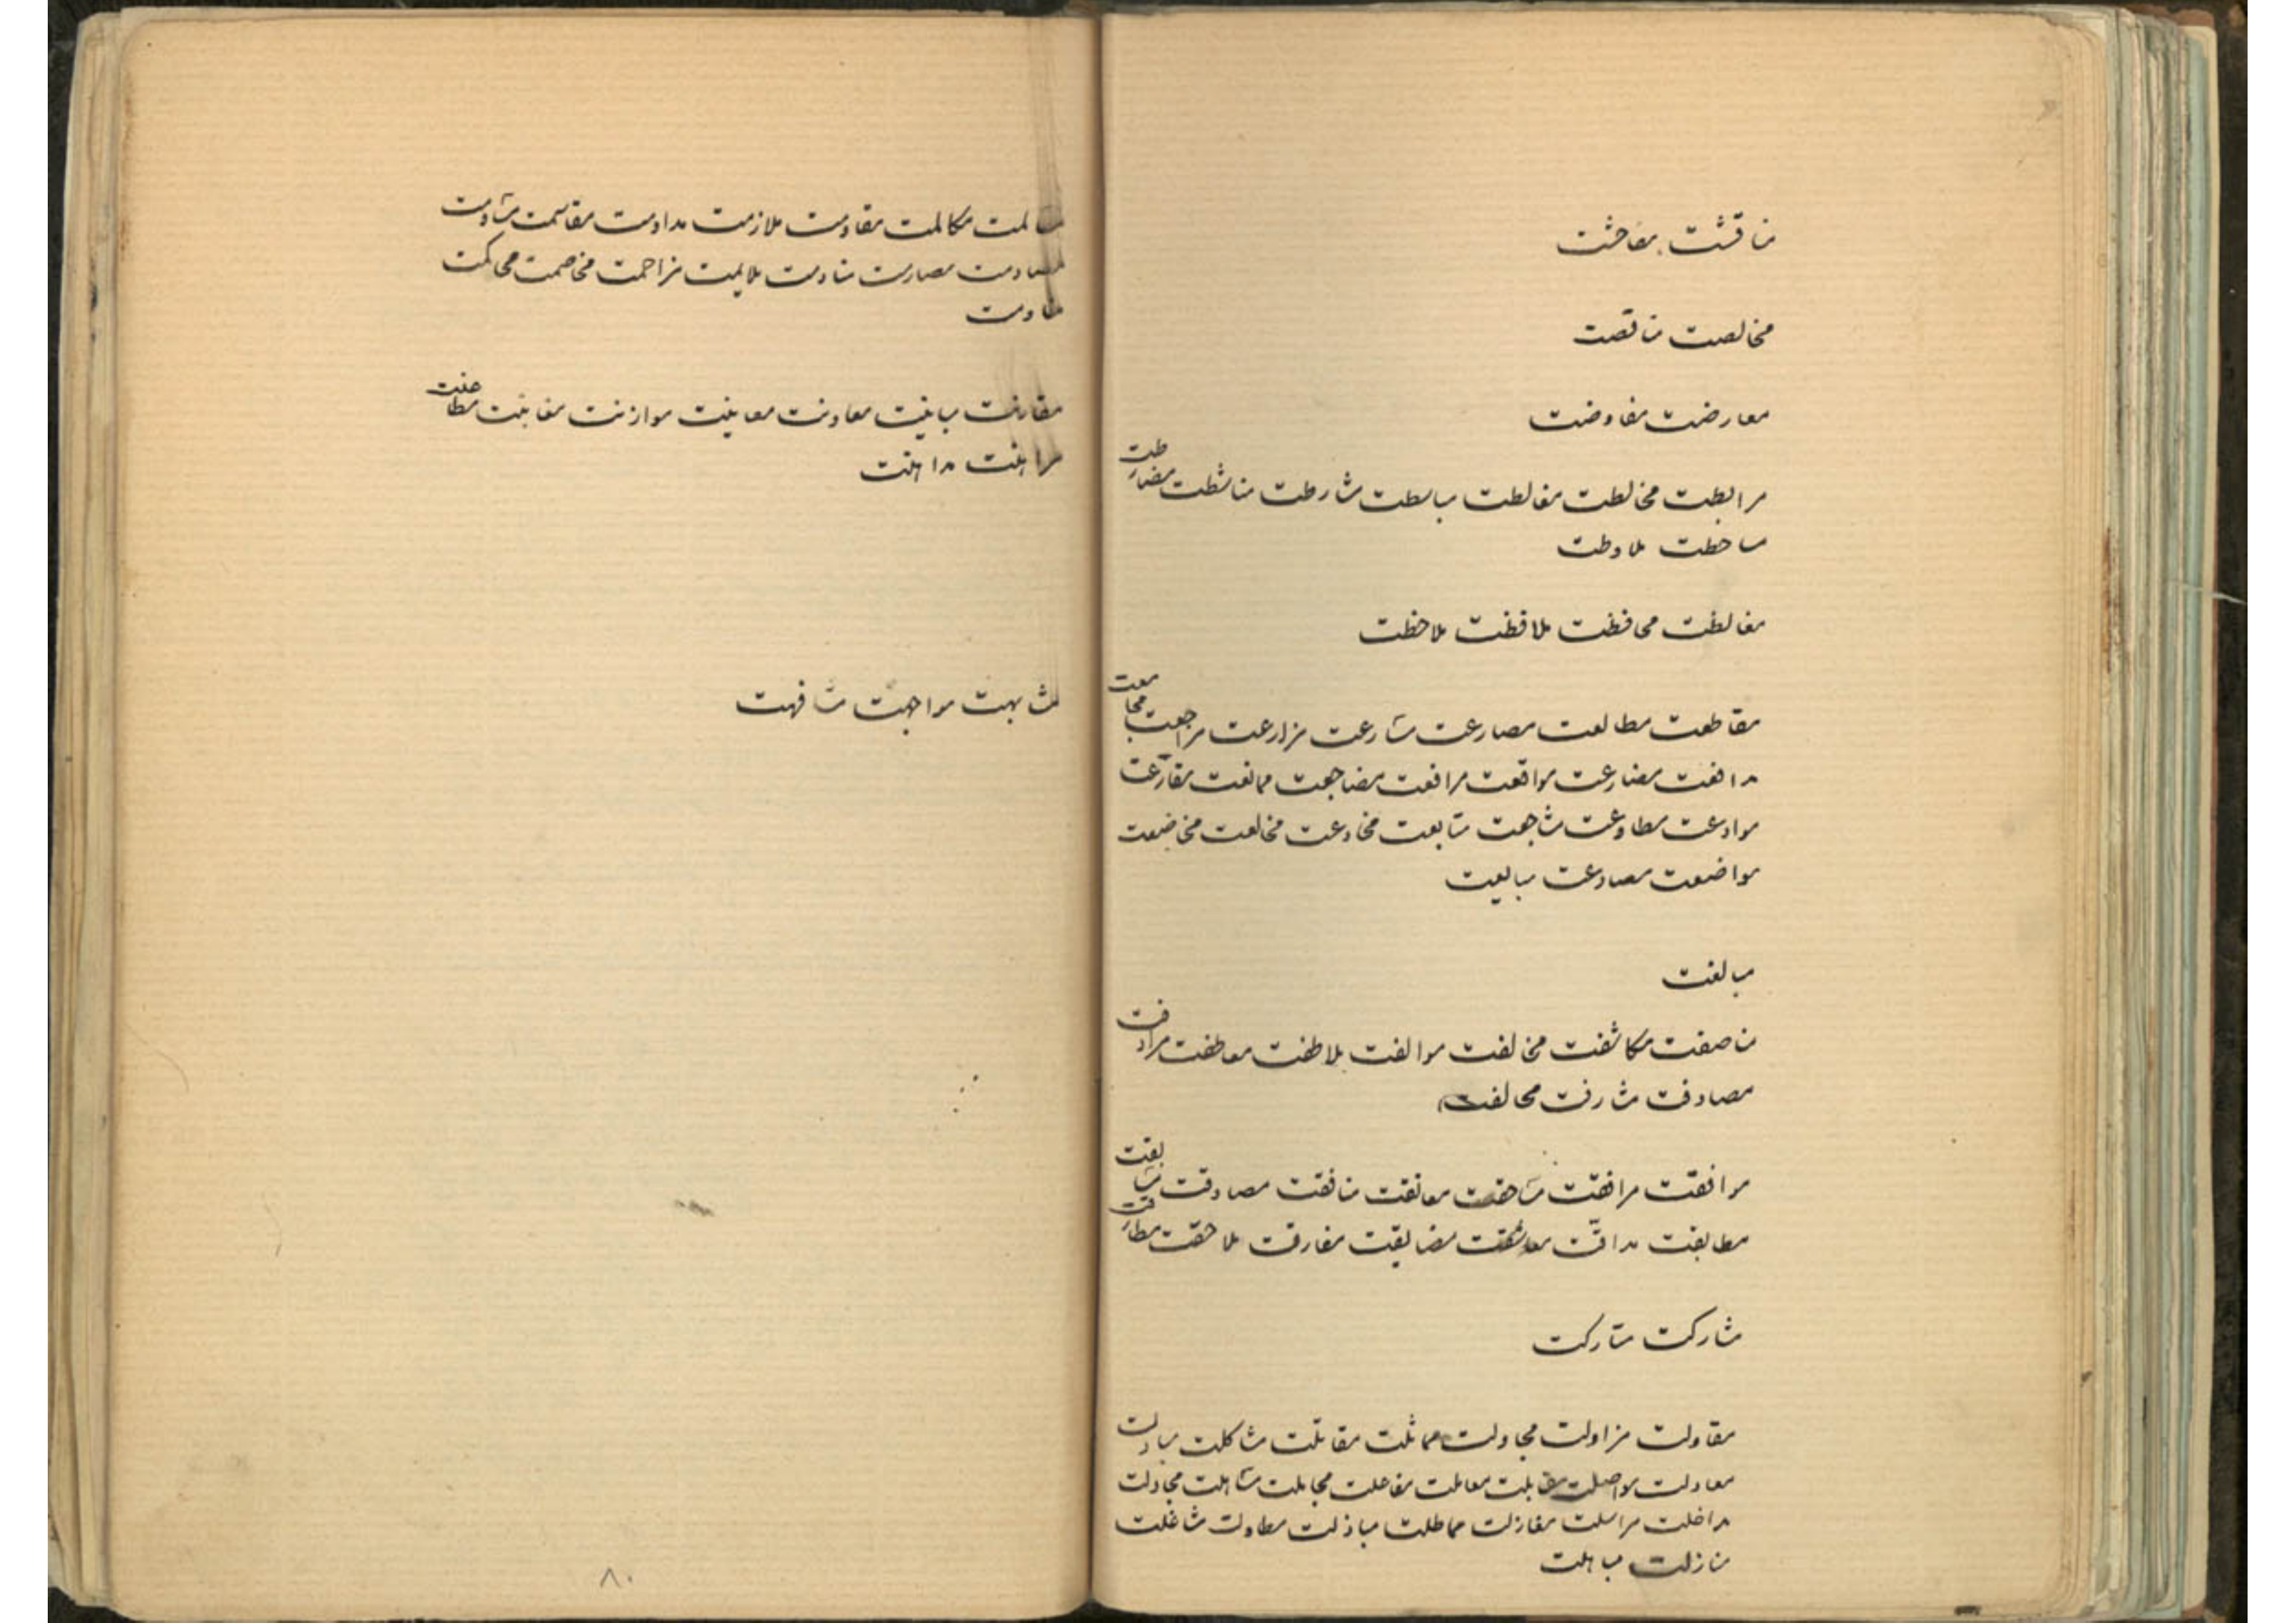 مناقشت مفاحشت
مخالصت مناقصت
معارضت مفاوضت
مرابطت مخالطت مغالطت مباسطت مشارطت مناشطت مضارطت
مساخطت ملاوطت
مغالظت محافظت ملافظت ملاحظت
مقاطعت مطالعت مصارعت مسارعت مزارعت مراجعت مجامعت
مدافعت مضارعت مواقعت مرافعت مضاجعت ممانعت مقارعت
موادعت مطاوعت مشاجعت متابعت مخادعت مخالعت مخاضعت
مواضعت مصادعت مبایعت
مبالغت
مناصفت مکاشفت مخالفت موالفت ملاطفت معاطفت مرادفت
مصادفت مشارفت محالفت
موافقت مرافقت مساحقت معانقت منافقت مصادقت مسابقت
مطابقت مداقت معاشقت مضایقت مفارقت ملاحقت مطارقت
مشارکت متارکت
مقاولت مزاولت مجادلت مماثلت مقاتلت مشاکلت مبادلت
معادلت مواصلت مقابلت معاملت مفاعلت مجاملت مساهلت مجادلت
مداخلت مراسلت مغازلت مماطلت مباذلت مطاولت مشاغلت
منازلت مباهلت
مکالمت مقاومت ملازمت مداومت مقاسمت مساومت
مصادمت مصارمت منادمت ملایمت مزاحمت مخاصمت محاکمت
مقارنت مباینت معاونت معاینت موازنت مغابنت مطاعنت
مراهنت مداهنت
مشابهت مواجهت مشافهت
۸۰